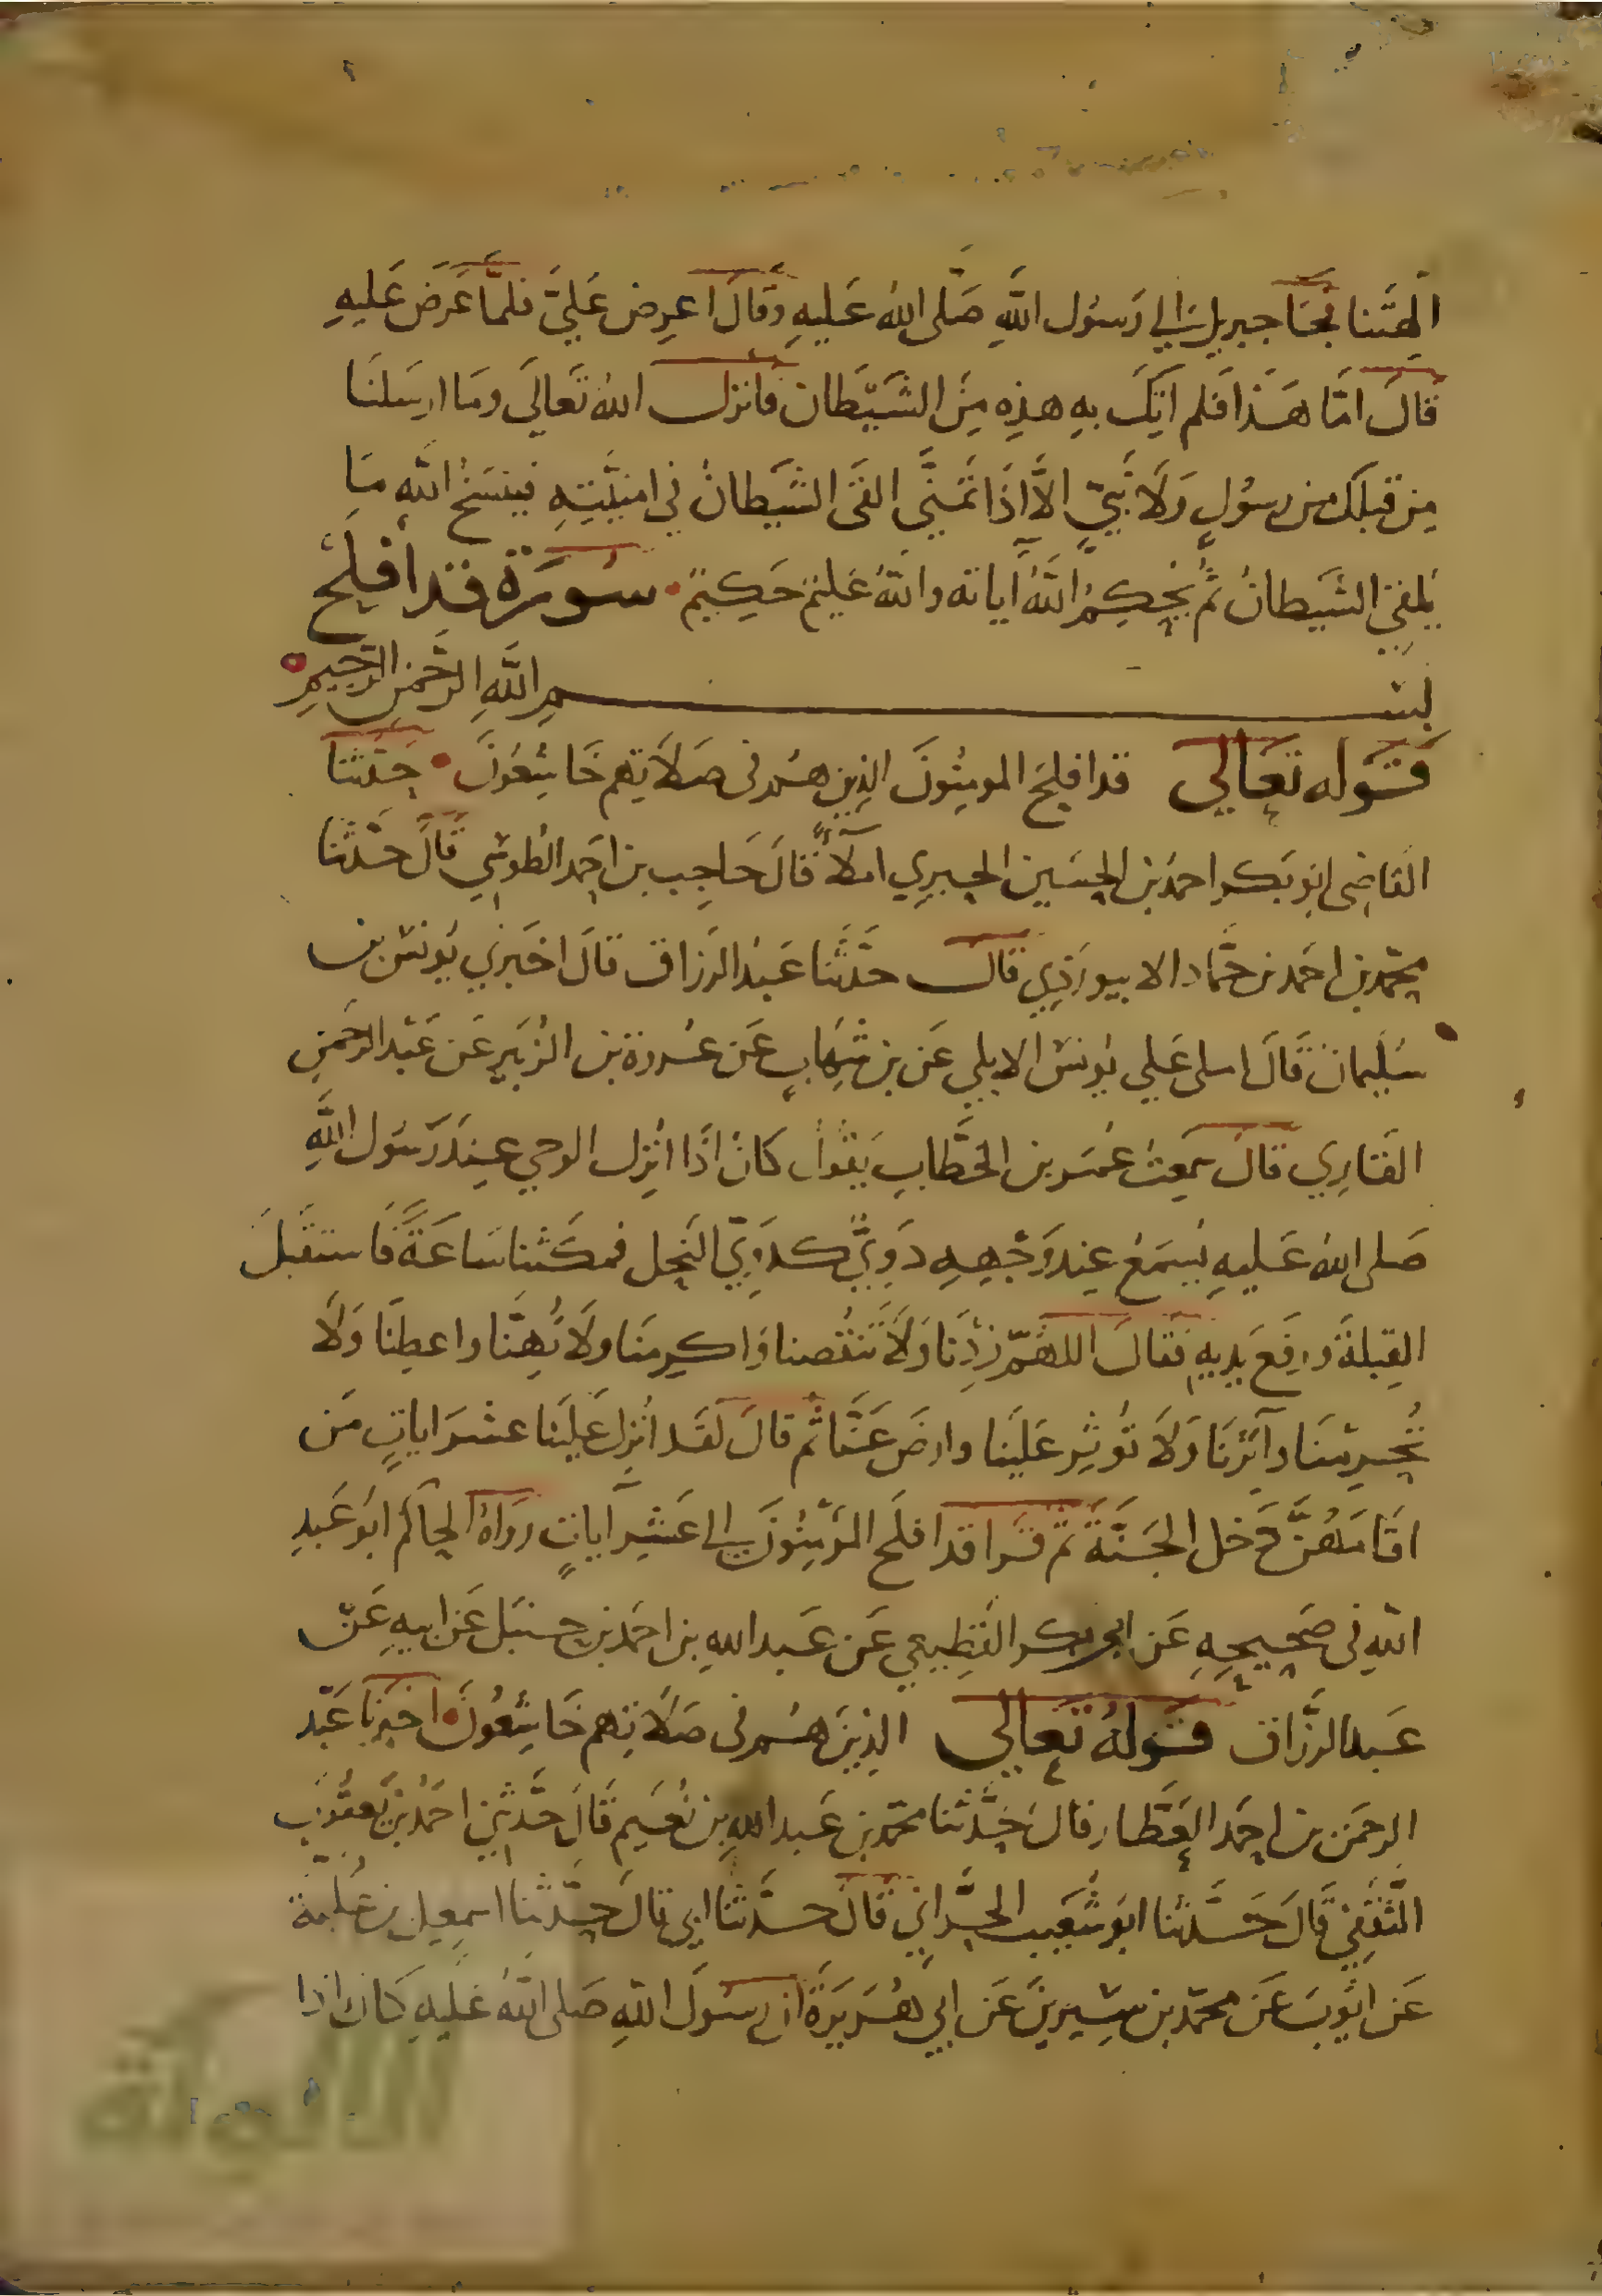 الهتنا فجا جبريل الى رَسُول اللَّهِ صَلَّى اللهُ عَليهِ وَقَالَ اعرِض عَلَيَّ فلمَّا عَرَضَ عَليهِ
قَالَ امَّا هَذَا فَلم اتِكَ بهِ هذِهِ مِنَ الشَيّطَان فَانزل اللهُ تَعَالَى ومَا ارسَلنَا
مِن قَبلك من رسُولٍ وَلَا نَبيٍّ الَّا اذَا تمَنَّى القَى الشَيطَانُ في امنيَّتِهِ فينسَخُ اللَّهِ مَا
يُلقِي الشَيطانُ ثمَّ يُحكِمُ اللَّهُ آياته واللَّهُ عَليمٌ حَكِيمٌ سُورَة قد افلَحَ
بسم اللَّهِ الرَّحمَنِ الرَّحيمِ
قَوله تعَالى قد افلحَ المومِنُونَ الذِين هُم فى صَلَاتِهم خَاشِعُونَ حَدثنا
القاضِى ابُو بَكر احمَدُ بن الحسَين الحِيرِي املآءً قَالَ حَاجِب بن احمَد الطُوسِي قَالَ حَدَّثنا
محمَّد بن احمَد بن حمَّاد الابيورَدِي قَال حدَّثَنَا عَبدُ الرَزاق قالَ اخبَرَنِي يُونسُ بن
سُليمان قَالَ املى عَلي يُونسُ الايلي عَن بن شِهَابٍ عَن عُروَة بن الزُبَيرِ عَن عَبد الرحمَنِ
القَارِي قَالَ سَمِعتُ عُمَر بن الخَطَّابِ يَقُولُ كَانَ اذَا انْزِل الوحي عِندَ رَسُول اللَّهِ
صَلى اللهُ عَليهِ يُسمَعُ عِند وَجهِهِ دَوِيٌّ كدَوِيّ النَحل فمكَثنا سَاعَةً فَاستَقبَلَ
القِبلَةَ وَرفَعَ يديهِ فقَالَ اللهُمّ زِدنَا وَلَا تَنقُصنا وَاكرِمنَا ولَا تُهِنَّا واعطِنَا وَلَا
تُحرِمنَا وآثِرنَا وَلَا تُوثِر عَلَينا وارضَ عَنَّا ثُم قَالَ لَقَد انُزِلَ عَلَينَا عشرَ اياتٍ مَن
اقَامَهُنَّ دَخل الجَنَّةَ ثم قَرَا قد افلَحَ المؤمِنُونَ الى عَشرِ آياتٍ رَوَاهُ الحاكم ابُو عَبدِ
اللهِ فى صَحيحِهِ عَن ابى بكر القَطِيعي عَن عَبد اللهِ بن احمَد بن حنبَل عَن ابيهِ عَن
عَبد الرَّزَّاق قَولهُ تعَالى الذِينَ هُم فى صَلَاتِهم خَاشِعُونَ اخبَرنَا عَبْد
الرحمَن بن احمَد العَطَّار قالَ حَدَّثنا محمَّد بن عَبد اللهِ بن نُعَيم قَالَ حَدَّثني احمَدُ بن يعقُوب
الثَّقَفِي قَالَ حَدَّثنا ابُو شُعَيب الحَرَّاني قَالَ حَدَّثنا ابي قالَ حَدَّثنا اسمعِيل بن عُليَّة
عَن ايُّوبَ عَن محمّد بن سِيرينَ عَن ابي هُرَيرَةَ ان رسُولَ اللَّهِ صَلى اللَّهُ عَليهِ كَانَ اذا
الألوكة